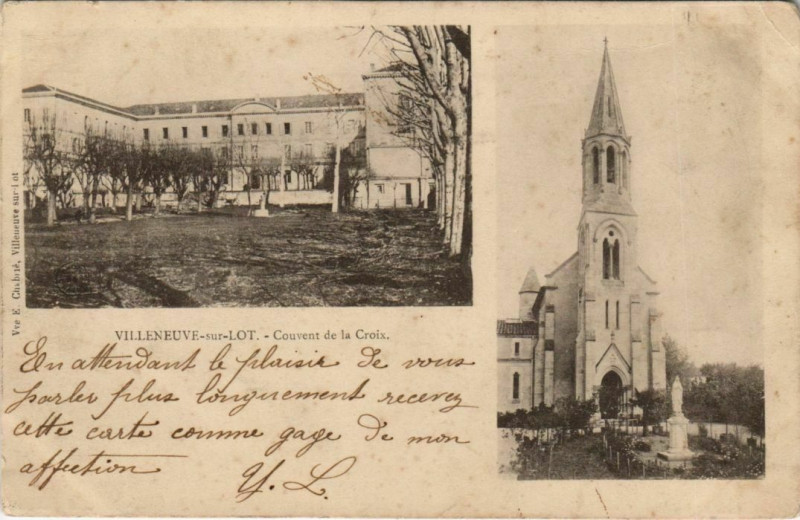 Vve E. Chabrié, Villeneuve sur-Lot
VILLENEUVE-sur-LOT. - Couvent de la Croix.
En attendant le plaisir de vous
parler plus longuement recevez
cette carte comme gage de mon
affection
Y. L.